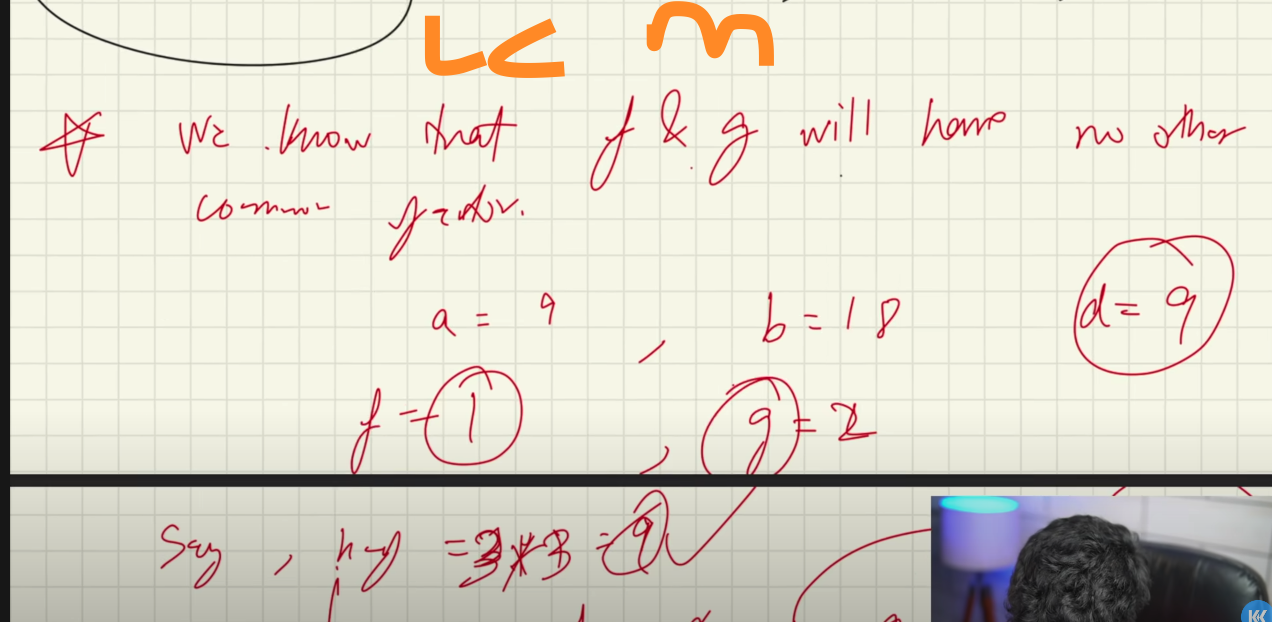 LCM
We know that f & g will have no other
common factor.
a = 9 , b = 18 d = 9
f = 1 , g = 2
Say , h = 3 * 3 = 9